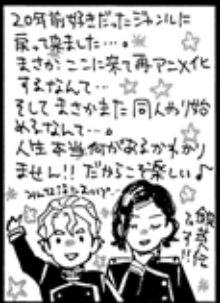 20年前好きだったジャンルに
戻って来ました…。
まさか ここに来て再アニメ化
するなんて…
そして まさかまた 同人やり始
めるなんて…。
人生本当何があるかわかり
ません!! だからこそ楽しい♪